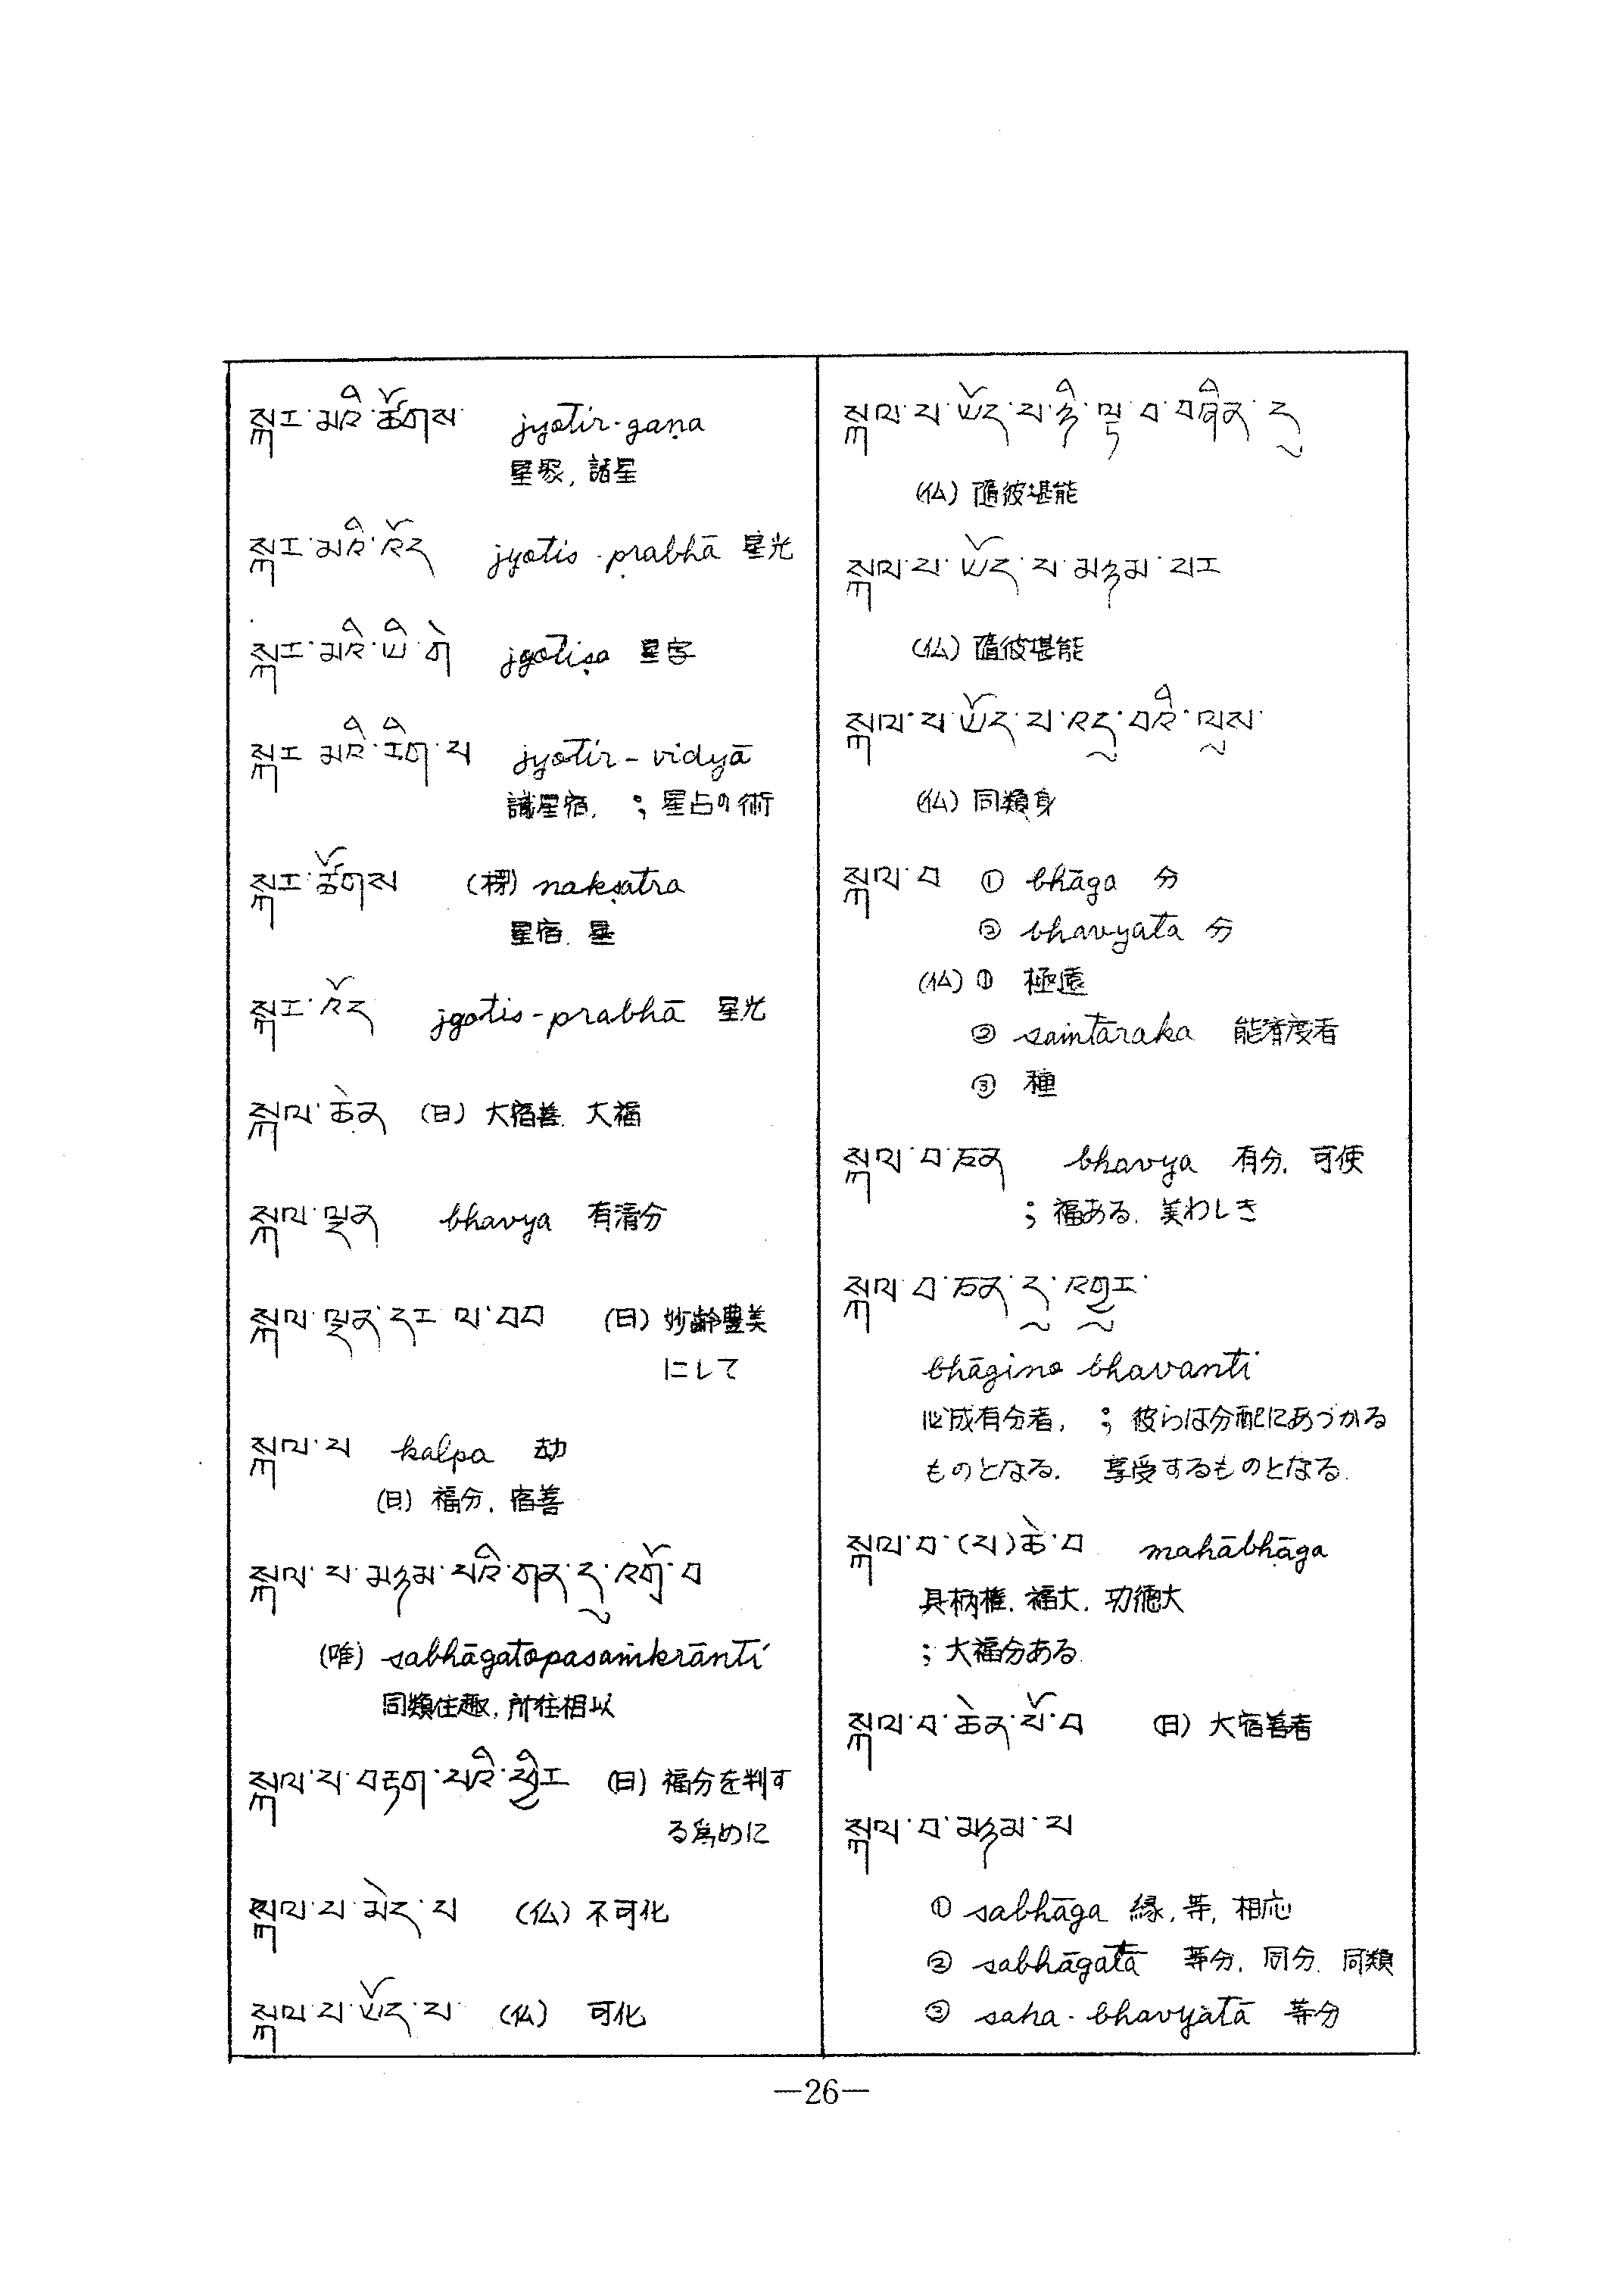 སྐར་མའི་ཚོགས་ jyotir-gaṇa
星聚, 諸星
སྐར་མའི་འོད jyotis-prabhā 星光
སྐར་མའི་ཡི་གེ jyotiṣa 星字
སྐར་མའི་རིག་པ jyotir-vidyā
識星宿. ; 星占の術
སྐར་ཚོགས (楞) nakṣatra
星宿. 星
སྐར་འོད jyotis-prabhā 星光
སྐལ་ཆེན (日) 大宿善. 大福
སྐལ་ལྡན bhavya 有清分
སྐལ་ལྡན་དར་ལ་བབ (日) 妙齢豊美
にして
སྐལ་པ kalpa 劫
(日) 福分, 宿善
སྐལ་པ་མཉམ་པའི་གནད་དུ་འགྲོ་བ
(唯) sabhāgatopasaṁkrānti
同類往趣, 所往相以
སྐལ་པ་བརྟག་པའི་ཕྱིར (日) 福分を判す
る為めに
སྐལ་པ་མེད་པ (仏) 不可化
སྐལ་པ་ཡོད་པ (仏) 可化
སྐལ་པ་ཡོད་པ་ཉི་ལྟ་བ་བཞིན་དུ
(仏) 隨彼堪能
སྐལ་པ་ཡོད་པ་མཉམ་པར
(仏) 隨彼堪能
སྐལ་པ་ཡོད་པ་འདྲ་བའི་ལུས་
(仏) 同類身
སྐལ་བ ① bhāga 分
② bhavyatā 分
(仏) ① 極遠
② saṁtāraka 能済度者
③ 種
སྐལ་བ་ཅན bhavya 有分, 可使
; 福ある. 美わしき
སྐལ་བ་ཅན་དུ་འགྱུར་
bhāgino bhavanti
必成有分者, ; 彼らは分配にあづかる
ものとなる. 享受するものとなる.
སྐལ་བ་(པ)ཆེ་བ mahābhāga
具柄権. 福大. 功徳大
; 大福分ある.
སྐལ་བ་ཆེན་པོ་བ (日) 大宿善者
སྐལ་བ་མཉམ་པ
① sabhāga 縁, 等, 相応
② sabhāgatā 等分, 同分. 同類
③ saha-bhavyatā 等分
—26—